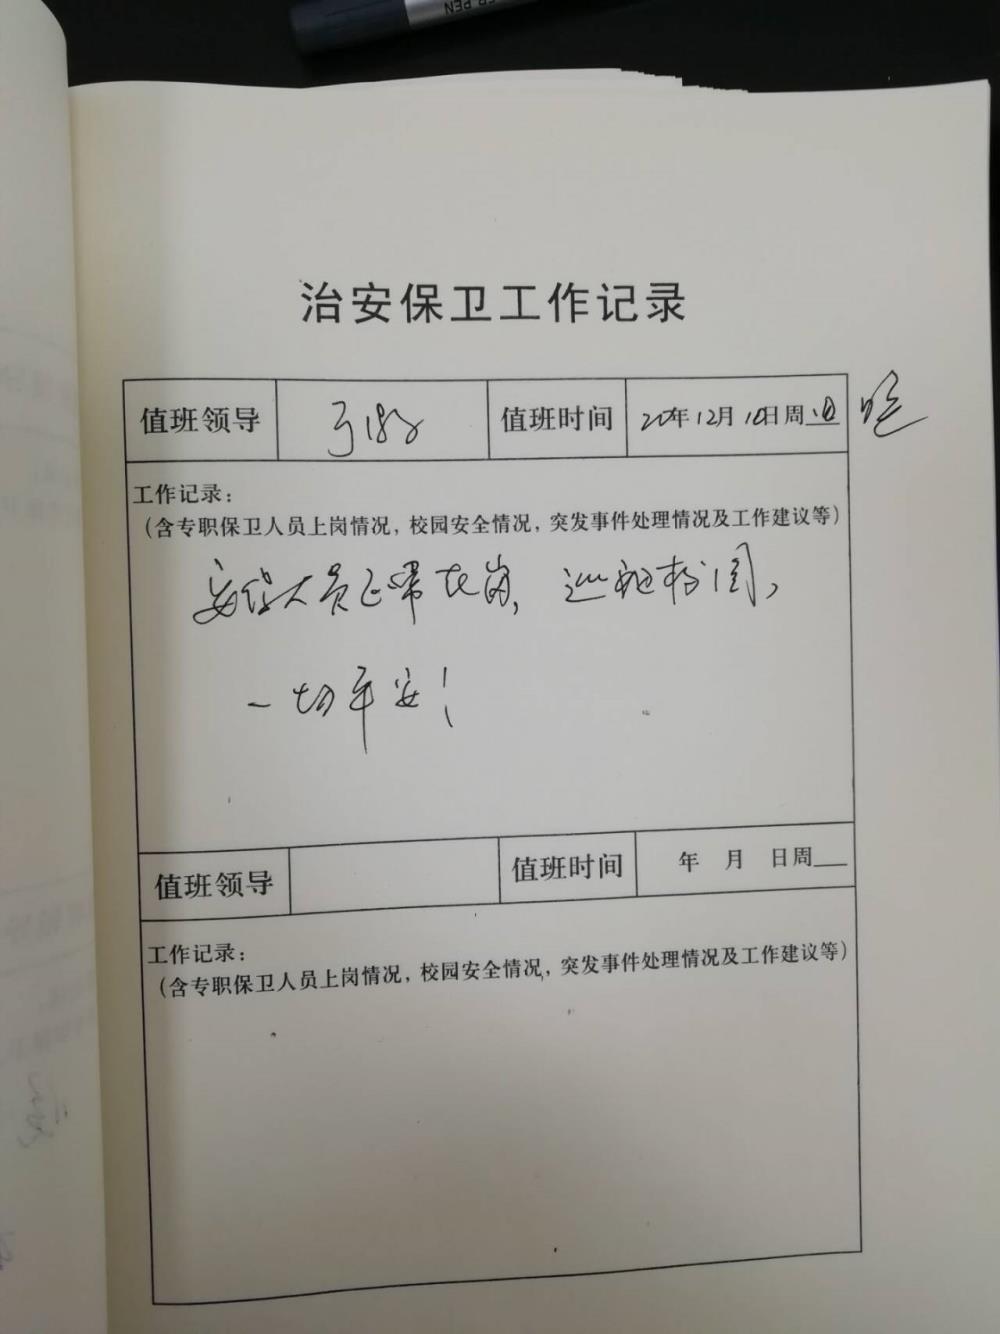 ER PEN
治安保卫工作记录
值班领导 值班时间 20年12月10日周四 晚
工作记录：
（含专职保卫人员上岗情况，校园安全情况，突发事件处理情况及工作建议等）
安保人员正常在岗，巡视校园，
一切平安！
值班领导 值班时间 年 月 日周
工作记录：
（含专职保卫人员上岗情况，校园安全情况，突发事件处理情况及工作建议等）